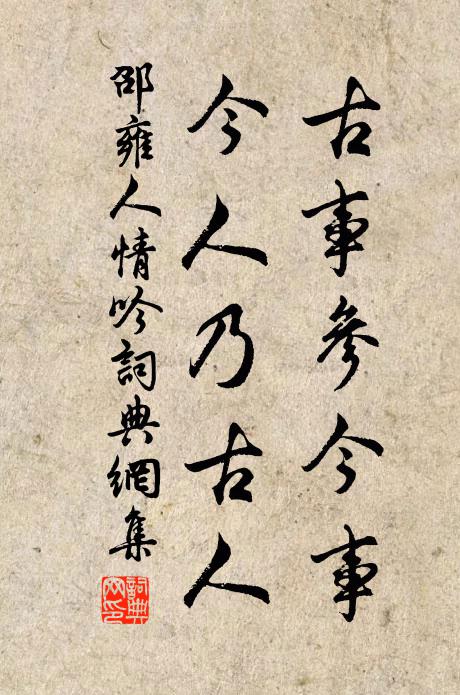 古事參今事
今人乃古人
邵雍人情吟詞典網集
詞典
网印